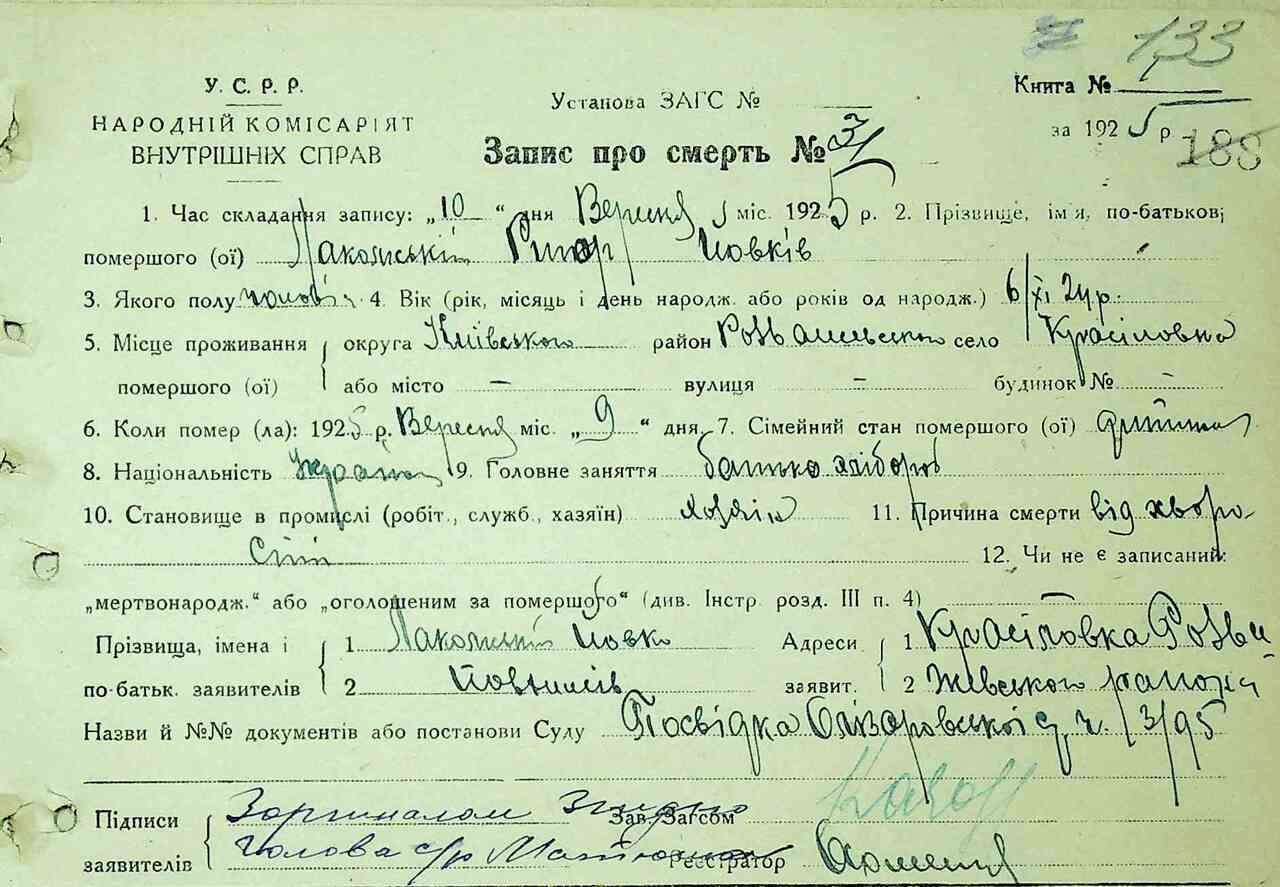 133
У. С. Р. Р.
НАРОДНІЙ КОМІСАРІЯТ
ВНУТРІШНІХ СПРАВ
Установа ЗАГС №
Запис про смерть №
Книга №
за 1925 р.
188
1. Час складання запису: „10“ дня Вересня міс. 1925 р. 2. Прізвище, ім'я, по-батькові
помершого (ої) Ригор Йовків
3. Якого полу чолов. 4. Вік (рік, місяць і день народж. або років од народж.) 6/XI 24 р.
5. Місце проживання округа Київського район село Красіловка
помершого (ої) або місто – вулиця – будинок № –
6. Коли помер (ла): 1925 р. Вересня міс. „9“ дня. 7. Сімейний стан помершого (ої) дитина
8. Національність Україн. 9. Головне заняття батько хлібороб
10. Становище в промислі (робіт., служб., хазяїн) хозяїн 11. Причина смерти від хворо-
сти 12. Чи не є записаний:
„мертвонародж.“ або „оголошеним за помершого“ (див. Інстр. розд. III п. 4)
Прізвища, імена і 1 Йовко Адреси 1 Красіловка Розва
по-батьк. заявителів 2 заявит. 2 жівського району
Назви й №№ документів або постанови Суду Посвідка 13/95
Підписи Зоргиналом Згидно Зав. Загсом
заявителів Голова с/р Реєстратор